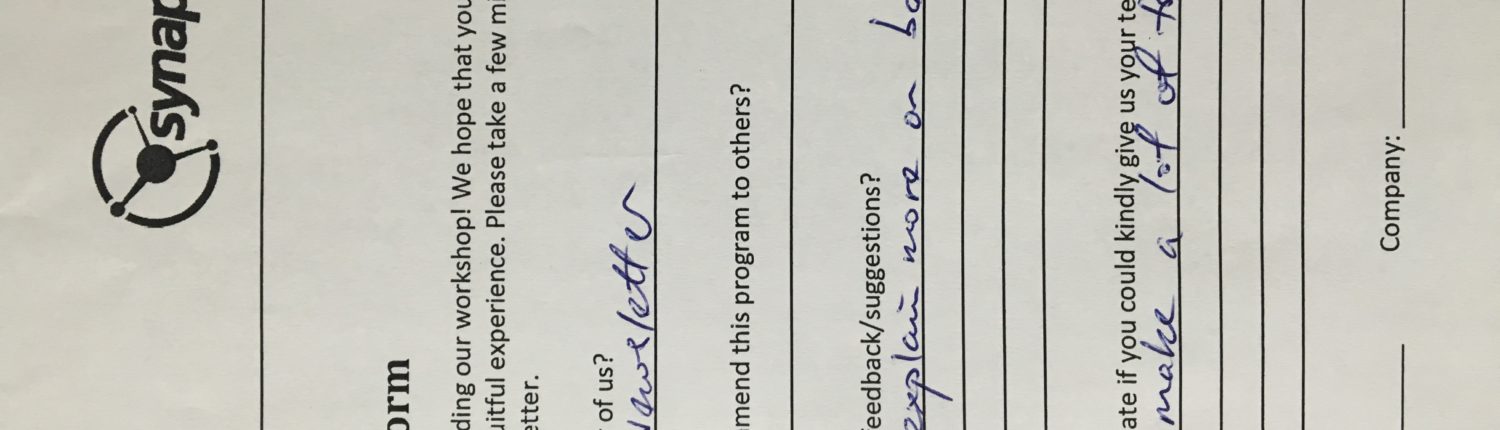 synap
orm
ding our workshop! We hope that you
uitful experience. Please take a few mi
etter.
of us?
newsletter
mend this program to others?
eedback/suggestions?
explain more on ba
ate if you could kindly give us your te
make a lot of to
Company: